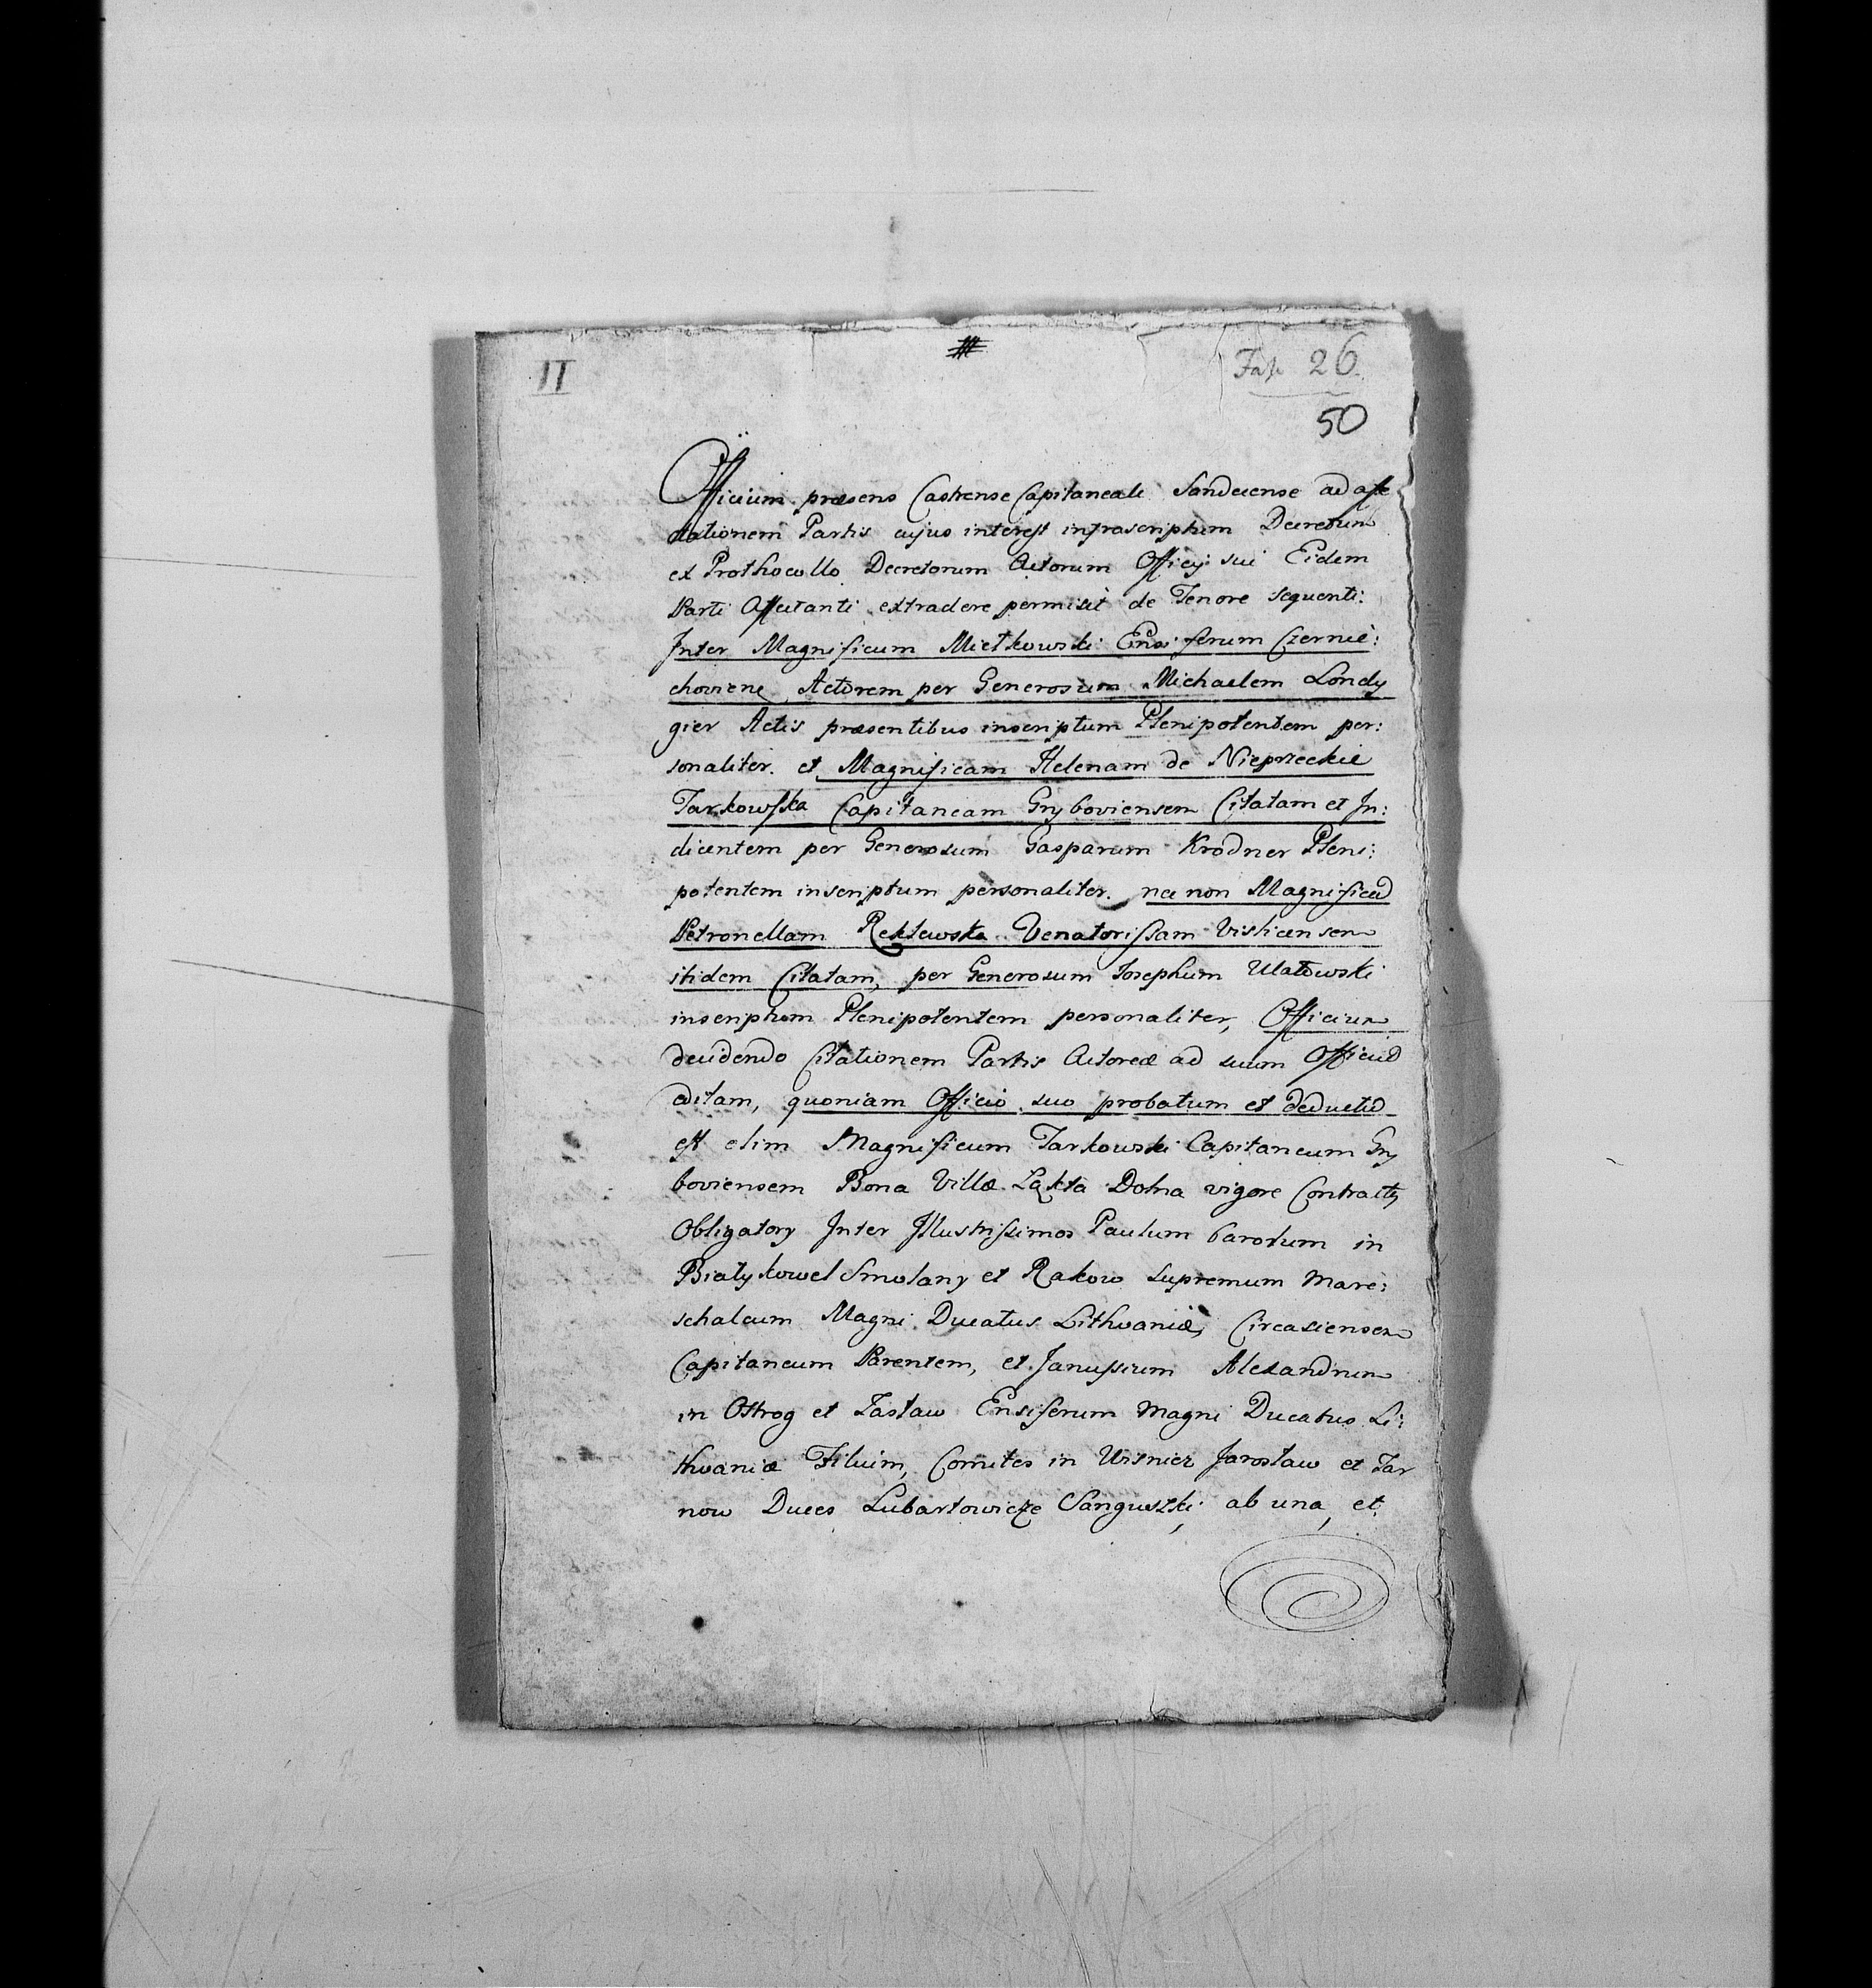 II
Fasc 26.
50
Officium præsens Castrense Capitaneale Sandecense ad affe
ctationem Partis cujus interest infrascriptum Decretum
ex Prothocollo Decretorum Actorum Officij sui Eidem
Parti Affectanti extradere permisit de Tenore sequenti:
Inter Magnificum Mietkowski Ensiferum Czernie:
choviens Actorem per Generosum Michaelem Londy
gier Actis præsentibus inscriptum Plenipotentem per:
sonaliter. et Magnificam Helenam de Nieprzeckie
Tarkowska Capitaneam Gryboviensem Citatam et In:
ducentem per Generosum Gasparum Krodner Pleni:
potentem inscriptum personaliter. nec non Magnificã
Petronellam Reklewska Venatorissam Visticensem
itidem Citatam, per Generosum Josephum Ulatowski
inscriptum Plenipotentem personaliter, Officium
decidendo Citationem Partis Actoreæ ad suum Officiũ
editam, quoniam Officio suo probatum et deductũ
est olim Magnificum Tarkowski Capitaneum Gry
boviensem Bona Villæ Łąkta Dolna vigore Contractus
Obligatorij Inter Illustrissimos Paulum Carolum in
Biały kowel Smolany et Rakow Supremum Mare:
schalcum Magni Ducatus Lithvaniæ, Circasiensem
Capitaneum Parentem, et Janussium Alexandrum
in Ostrog et Zasław Ensiferum Magni Ducatus Li:
thvaniæ Filium, Comites in Wisnicz Jarosław et Tar
now Duces Lubartowicze Sanguszki, ab una, et